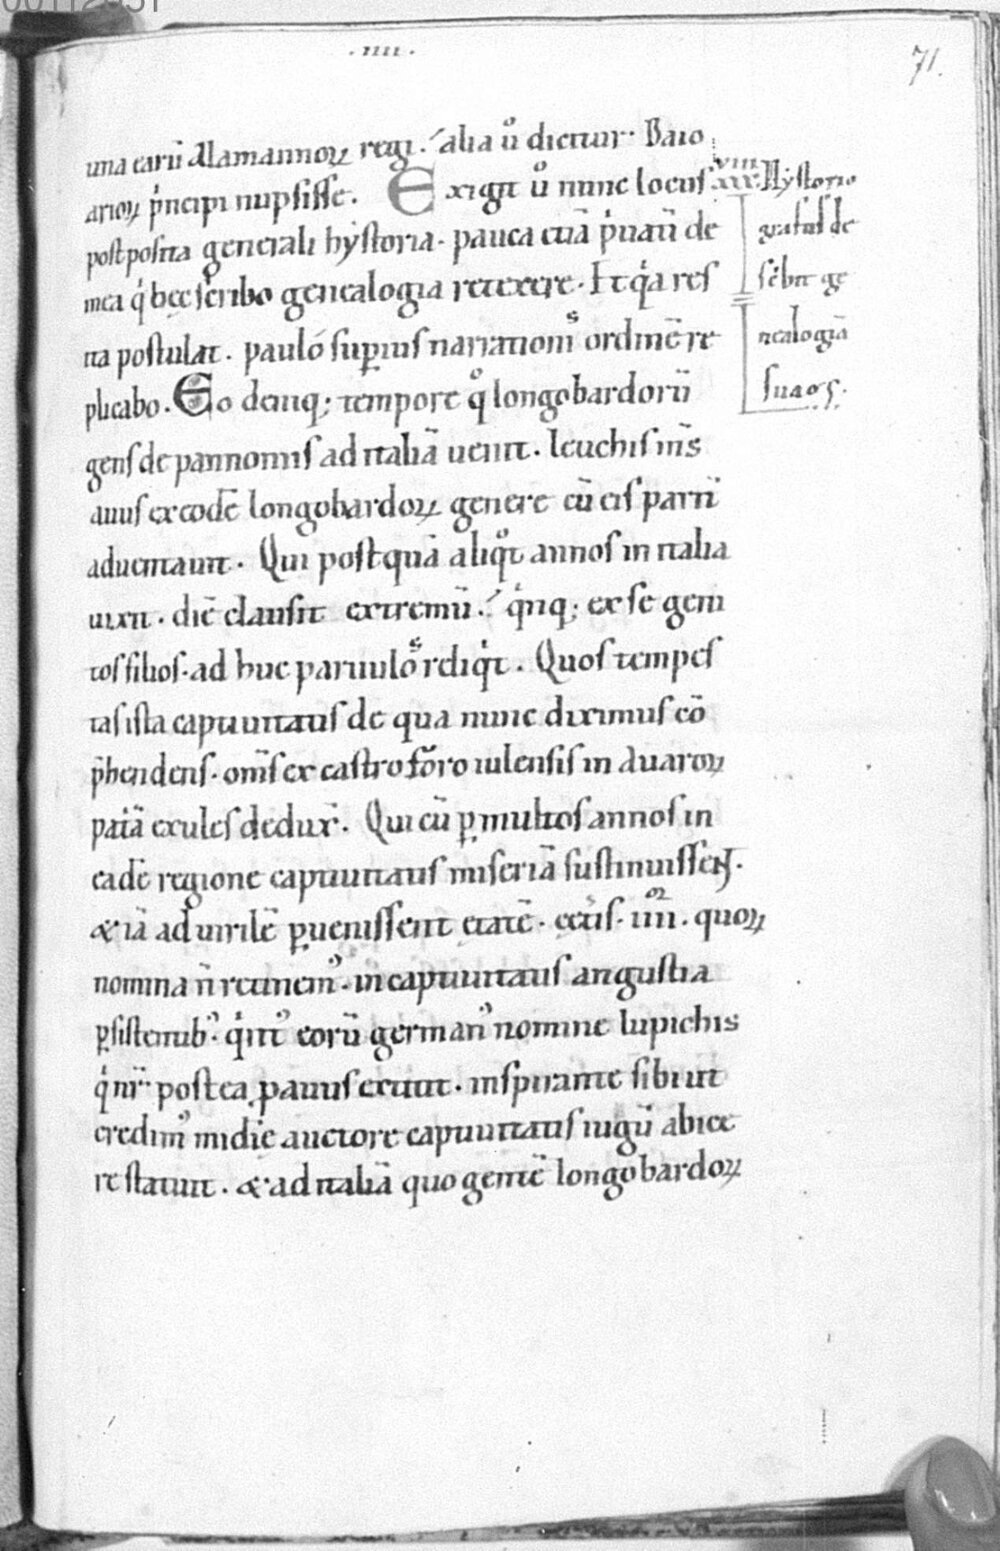 ·IIII·
71.
una earū Alamannoꝝ regi. alia ů dicitur· Baio
arioꝝ pͥncipi nupsisse. Exigit ů nunc locus
post posita generali hẏstoria· pauca etiā pͥuatī de
mea qͥ hec scribo genealogia retexere· Et qͥa res
ita postulat. pauló suꝑius narrationiˢ ordinē re
plicabo. Eo deniq; tempore qͦ longobardorū
gens de pannoniis ad italiā uenit. leuchis mīs
auus ex eodē longobardoꝝ genere cū eis parit̄
aduentauit. Qui postquā aliqͦt annos in italia
uixit. diē clausit extremū. qͥnq; ex se geni
tos filios· ad huc paruuloˢ rēliqͥt. Quos tempes
tas ista captiuitatis de qua nunc diximus cō
p̄hendens· om̄s ex castro foro iulensis in auaroꝝ
patͥā exules dedux̄. Qui cū ꝑ multos annos in
eadē regione captiuitatis miseriā sustinuissent.
& iā ad uirilē ꝑuenissent etatē· cet̄is· IIII. quoꝝ
nomina n̄ retinem᾽. in captiuitatis angustia
ꝑsistentib᾽· qͥnt᾽ eorū german᾽ nomine lupichis
qͥ nr̄· postea ꝓauus extitit. inspirante sibi ut
credim᾽ mīdi̜e auctore captiuitatis iugū abice
re statuit. & ad italiā quo gentē longobardoꝝ
VIII
XIX. Hẏstorio
grafus de
sc̄bit ge
nealogiā
suā